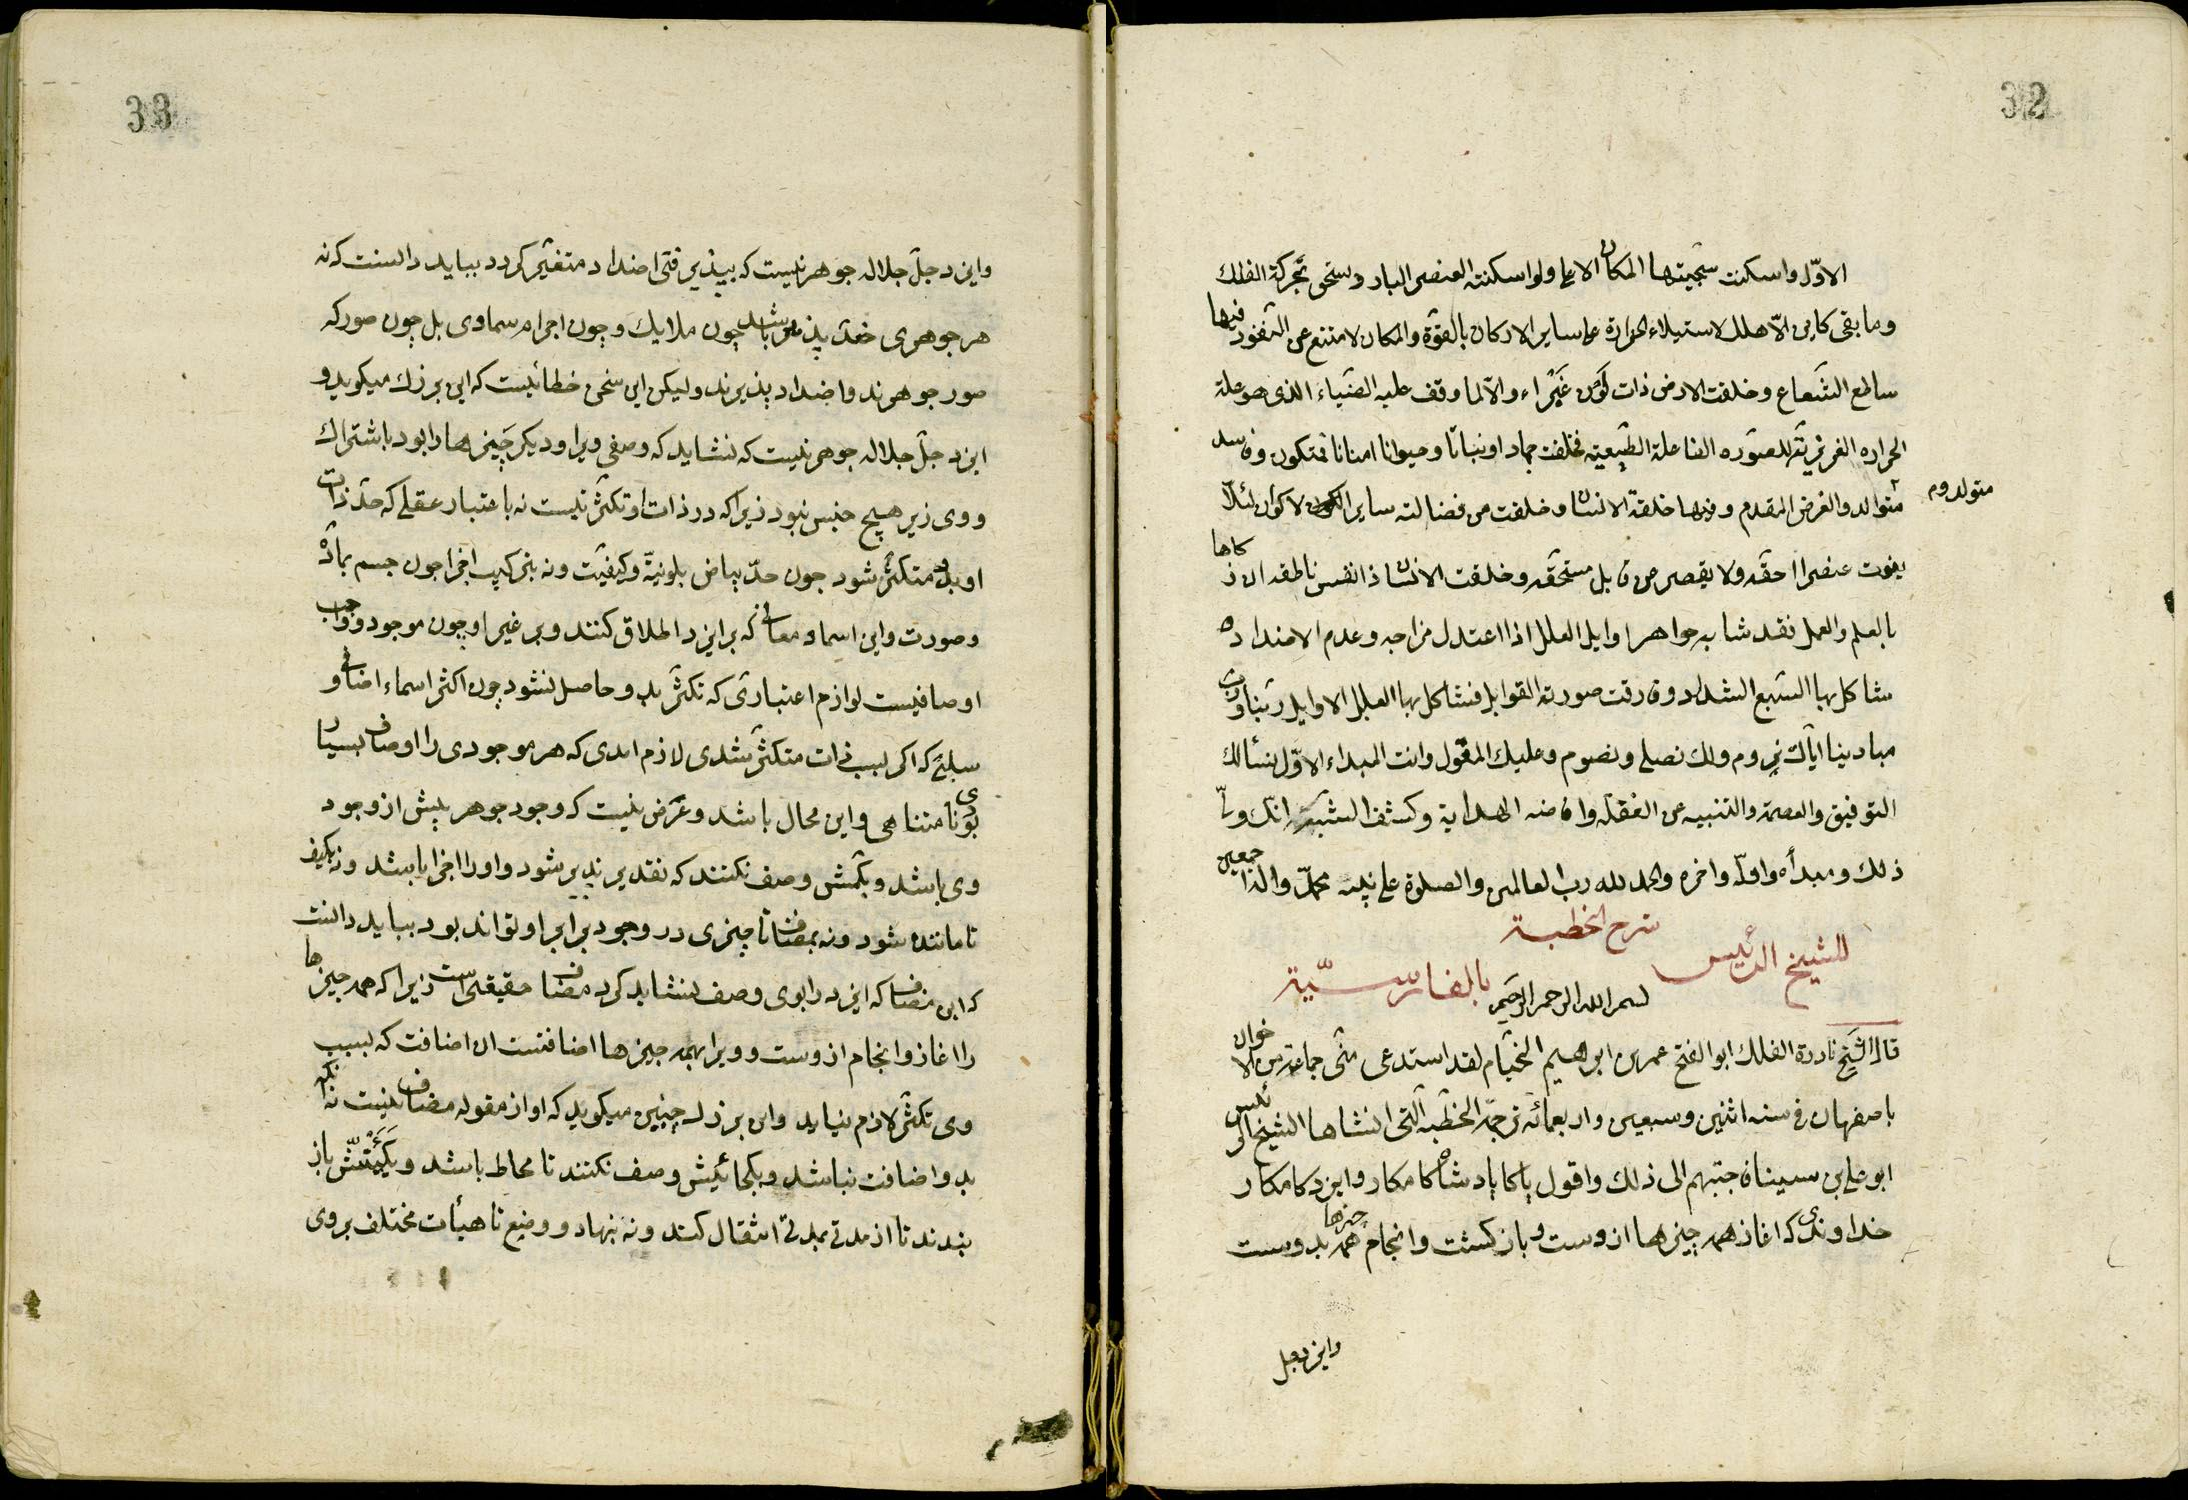 32
الاوّل واسكنت سجیتها المكان الاعلی ولو اسكنته العنصر البارد وسخن بحركة الفلك
وما بقی كاین الّا هلك لاستیلاء الحرارة علی سایر الاركان بالقوّة والمكان لا متنع عن النفوذ فیها
ساطع الشعاع وخلقت الارض ذات لون غبراء والّا لما وقف علیه الضیاء الذی هو علة
الحراره الغریزیّة للصوره الفاعلة الطبیعیه فخلقت جمادا ونباتا وحیوانا امنانا فمتكون وفاسد
متولد وم
متوالد والغرض المقدم وفیها خلقة الانسان وخلقت من فضالته سایر الاكوان لئلّا
یفوت عنصرا حقه ولا یقصر عن قابل مستحقه وخلقت الانسان ذا نفس ناطقه ان زكاها
بالعلم والعمل فقد شابه جواهر اوایل العلل اذا اعتدل مزاجه وعدم الاضداد
شاكل بها السبع الشداد وفارقت صورته القوابل فشاكل بها العلل الاوایل ربنا ورب
مبادینا ایاك نروم ولك نصلی ونصوم وعلیك المعّول وانت المبداء الاوّل نسألك
التوفیق والعصمة والتنبیه عن الغفلة وافاضه الهدایة وكشف الشبهة انّك ولیّ
ذلك ومبدأه واوّله واخره والحمد لله رب العالمین والصلوة علی نبیه محمّد واله اجمعین
شرح الخطبة
للشیخ الرئیس
بالفارسیّة
بسم الله الرحمن الرحیم
قال الشیخ نادرة الفلك ابو الفتح عمر بن ابراهیم الخیّام لقد استدعی منّی جماعة من الاخوان
باصفهان فی سنه اثنین وسبعین واربعمائه ترجمة الخطبه الّتی انشاها الشیخ الرئیس
ابو علی بن سینا فاجبتهم الی ذلك واقول پاكا پادشاها كامكار وایزد كامكار
خداوندی كه اغاز همه چیزها ازوست وبازكشت وانجام همه چیزها بدوست
وایزد جل
33
وایزد جلّ جلاله جوهر نیست كه بپذیرفتن اضداد متغیّر كردد بباید دانست كه نه
هر جوهری ضدّ پذیر باشد چون ملایك وچون اجرام سماوی بل چون صور كه
صور جوهرند واضداد پذیرند ولیكن این سخن خطائیست كه این بزرك میكوید و
ایزد جلّ جلاله جوهر نیست كه نشاید كه وصفی ویرا ودیكر چیزها را بود باشتراك
ووی زیر هیچ جنس نبود زیرا كه در ذات او تكثّر نیست نه باعتبار عقلی كه حدّ ذات
او بدو متكثّر شود چون حدّ بیاض بلونیّة وكیفیّت ونه بتركیب اجزا چون جسم بمادّه
وصورت واین اسماء ومعانی كه بر ایزد اطلاق كنند وبر غیر او چون موجود وواجب
اوصافیست لوازم اعتباری كه تكثّر بدو حاصل نشود چون اكثر اسماء اضافی و
سلبی كه اكر بسبب ذات متكثّر شدی لازم امدی كه هر موجودی را اوصاف بسیار
بودی نامتناهی واین محال باشد وعرض نیست كه وجود جوهر پیش از وجود
وی باشد وبكمش وصف نكنند كه تقدیر پذیر شود واو را اجزا باشد ونه بكیف
تا ماننده شود ونه بمضاف تا چیزی در وجود برابر او تواند بود بباید دانست
كه این مضاف كه ایزد را بوی وصف نشاید كرد مضاف حقیقی است زیرا كه همه چیزها
را اغاز وانجام ازوست وویرا بهمه چیزها اضافتست ان اضافت كه بسبب
وی تكثّر لازم نیاید واین بزرك چنین میكوید كه او از مقوله مضاف نیست نه انكه
بدو اضافت نباشد وبكجائیش وصف نكنند تا محاط باشد وبكیئیش باز
بندند تا از مدتی بمدتی انتقال كند ونه بنهاد ووضع تا هیأت مختلف بر وی